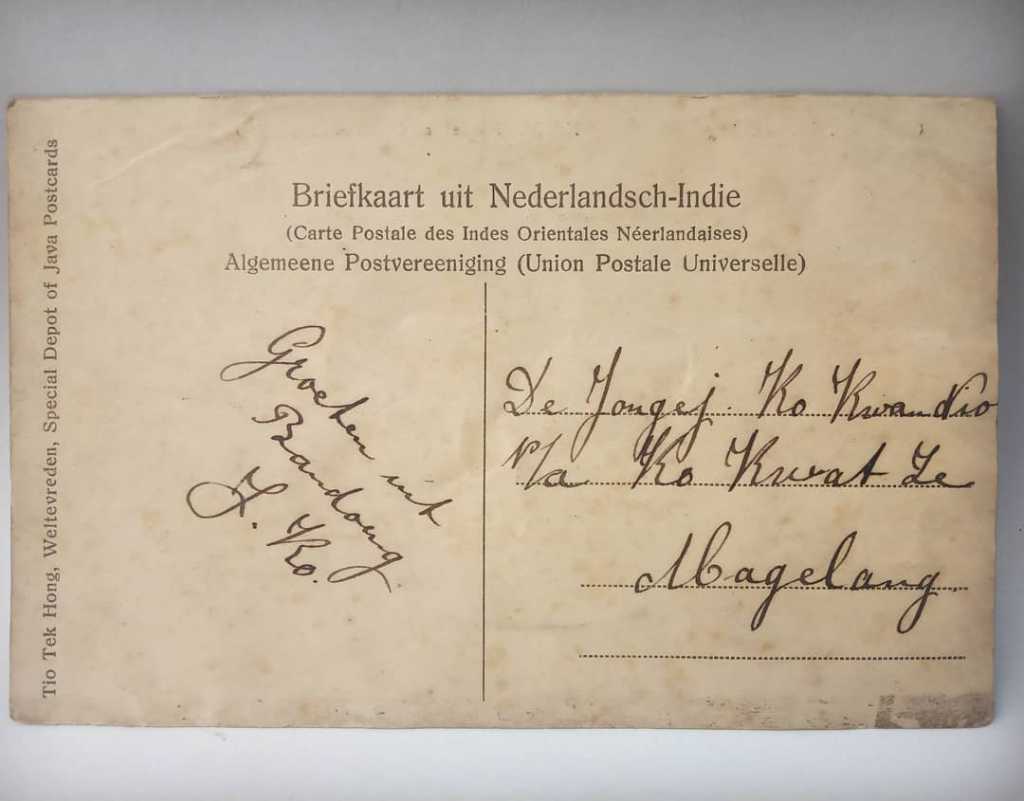 Briefkaart uit Nederlandsch-Indie
(Carte Postale des Indes Orientales Néerlandaises)
Algemeene Postvereeniging (Union Postale Universelle)
Tio Tek Hong, Weltevreden, Special Depot of Java Postcards
Groeten uit
Bandong
J. Ko.
De Jongej. Ko Kwan Nio
p/a Ko Kwat Ze
Magelang